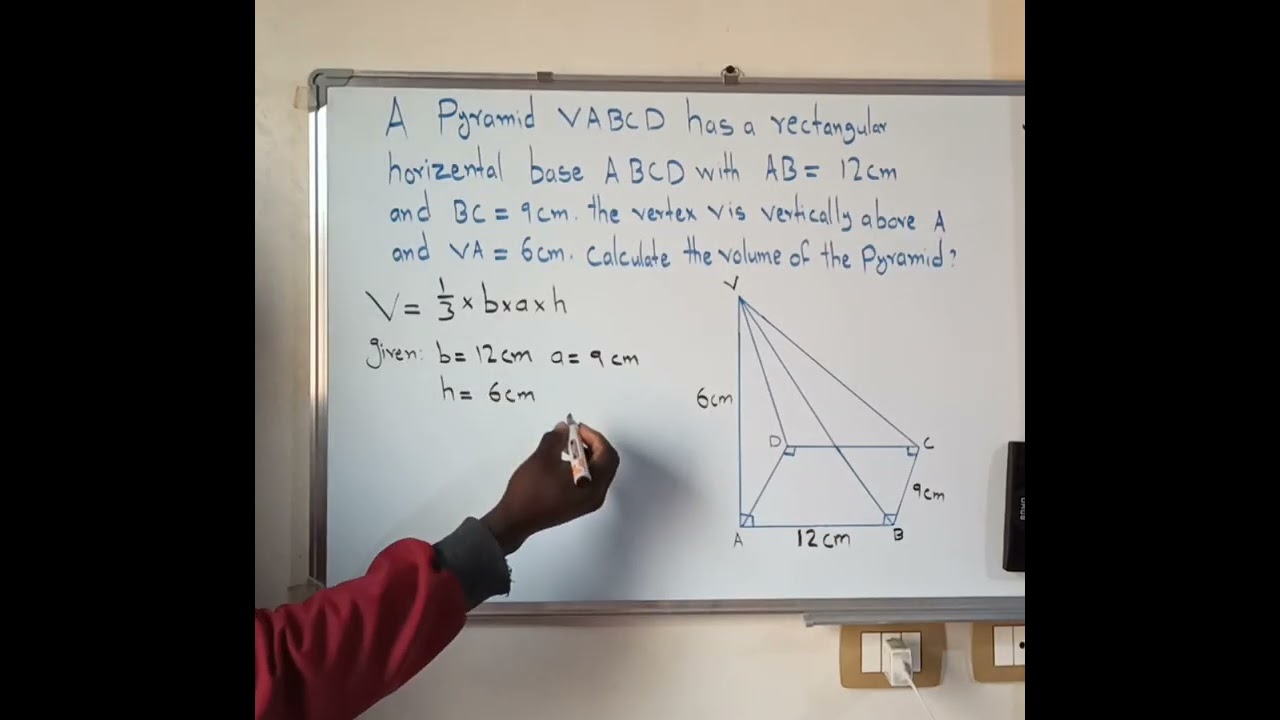 A Pyramid VABCD has a rectangular
horizental base ABCD with AB = 12cm
and BC = 9cm. the vertex V is vertically above A
and VA = 6cm. Calculate the volume of the Pyramid?
V = 1/3 × b × a × h
given: b = 12cm a = 9cm
h = 6cm
V
6cm
D
C
9cm
A
12cm
B